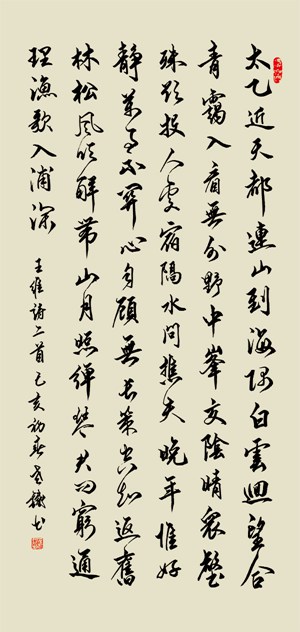 太乙近天都連山到海隅白雲迴望合
青靄入看無分野中峯变陰晴眾壑
殊欲投人處宿隔水問樵夫晚年惟好
靜萬事不關心自顧無長策空知返舊
林松風吹解帶山月照彈琴君問窮通
理漁歌入浦深
王維詩二首己亥初春